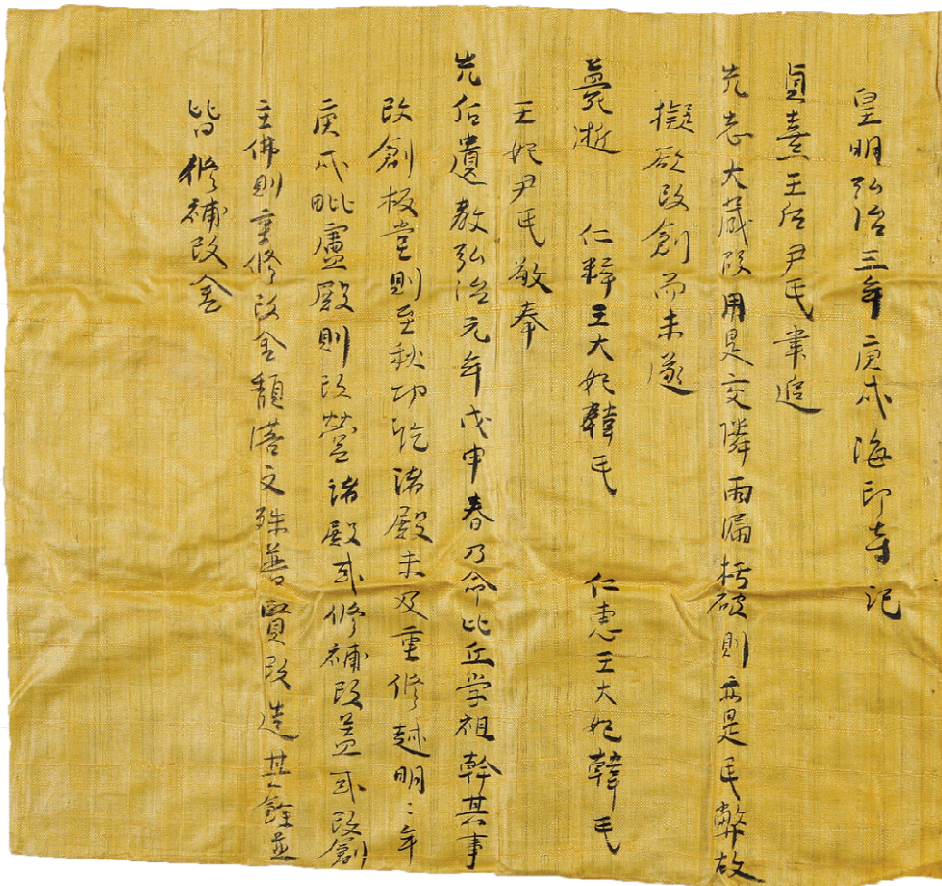 皇明弘治三年庚戌海印寺記
貞熹王后尹氏聿追
先志大藏段用是交隣雨漏朽破則亦是民弊故
擬欲改創而未遂
薨逝 仁粹王大妃韓氏 仁惠王大妃韓氏
王妃尹氏敬奉
先后遺敎弘治元年戊申春乃命比丘学祖幹其事
改創板堂則至秋功訖諸殿未及重修越明〻年
庚戌毗盧殿則改營諸殿或修補改盖或改創
主佛則重修改金頹落文殊普賢改造其餘並
皆修補改金